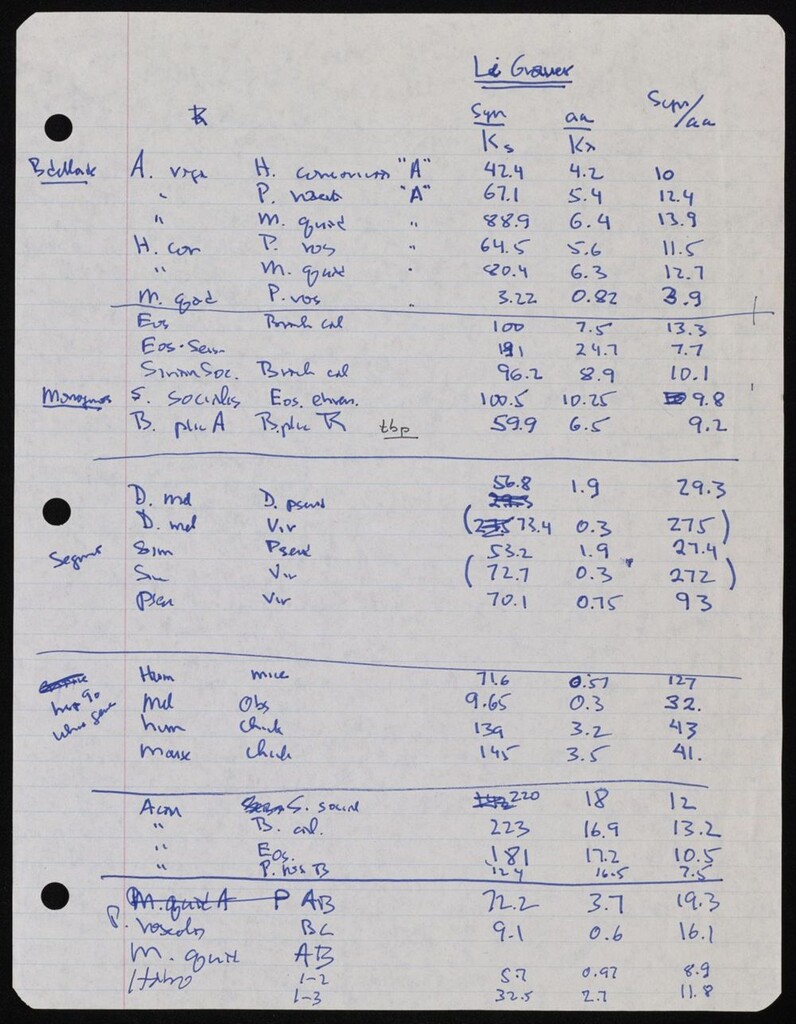 Syn aa Syn/aa
Ks Ka
Bdelloids A. vaga H. "A" 42.4 4.2 10
" P. "A" 67.1 5.4 12.4
" M. quad " 88.9 6.4 13.9
H. con P. ros " 64.5 5.6 11.5
" M. quad " 80.4 6.3 12.7
M. quad P. ros " 3.22 0.82 3.9
Eos Brach cal 100 7.5 13.3
Eos-Sein 191 24.7 7.7
Sinan Soc. Brach cal 96.2 8.9 10.1
Monogonos S. socialis Eos. ehren. 100.5 10.25 9.8
B. plic A B. plic B tbp 59.9 6.5 9.2
D. mel D. pseud 56.8 1.9 29.3
D. mel Vir (73.4 0.3 275)
Sim Pseud 53.2 1.9 27.4
Sim Vir (72.7 0.3 272)
Pseu Vir 70.1 0.75 93
Hum mice 71.6 0.57 127
Mel Obs 9.65 0.3 32.
hum Chick 139 3.2 43
mouse Chick 145 3.5 41.
Acan S. social 220 18 12
" B. cal. 223 16.9 13.2
" Eos. 181 17.2 10.5
" P. ros B 124 16.5 7.5
M. quad A P AB 72.2 3.7 19.3
P. roseola BC 9.1 0.6 16.1
M. quad AB
Habro 1-2 5.7 0.97 8.9
1-3 32.5 2.7 11.8